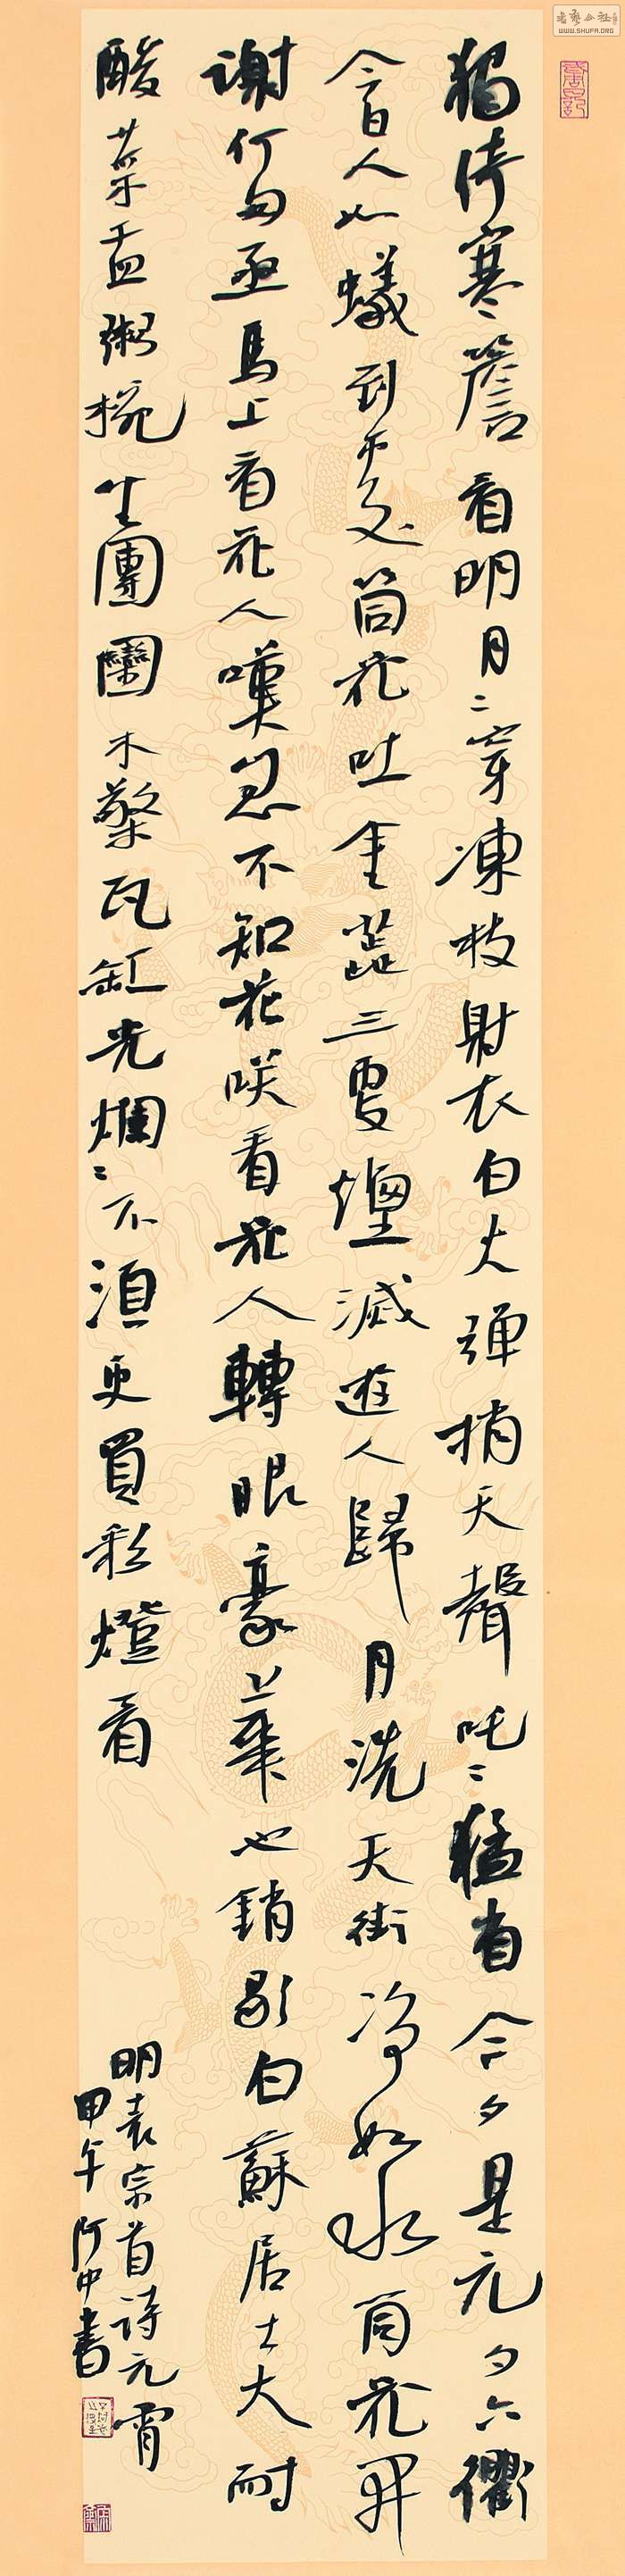 獨倚寒簷看明月二穿凍枝射衣白火彈捎天聲吒二猛省今夕是元夕六衢
今日人如蟻到處筒花吐金蕊三更煙滅遊人歸月洗天街淨如水筒花開
謝何匆亟馬上看花人嘆息不知花咲看花人轉眼豪華也銷歇白蘇居士大耐
酸菜盂粥椀坐團圞木檠瓦缸光爛二不須更買彩燈看
明袁宗首詩元宵
甲午阿中書
书法公社
WWW.SHUFA.ORG